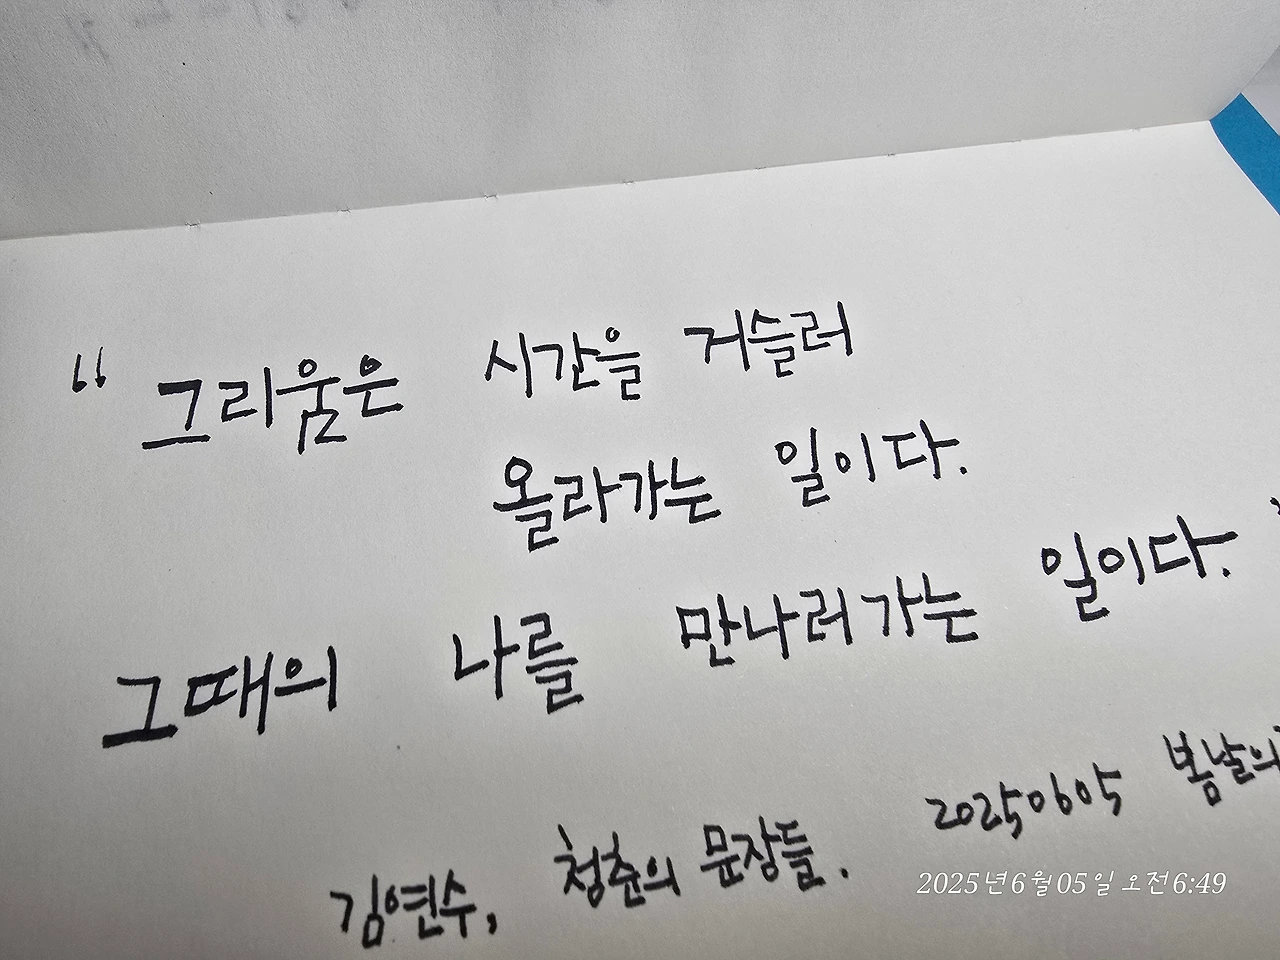 “ 그리움은 시간을 거슬러
올라가는 일이다.
그때의 나를 만나러 가는 일이다.
김연수, 청춘의 문장들. 20250605 봄날의
2025년 6월 05일 오전 6:49